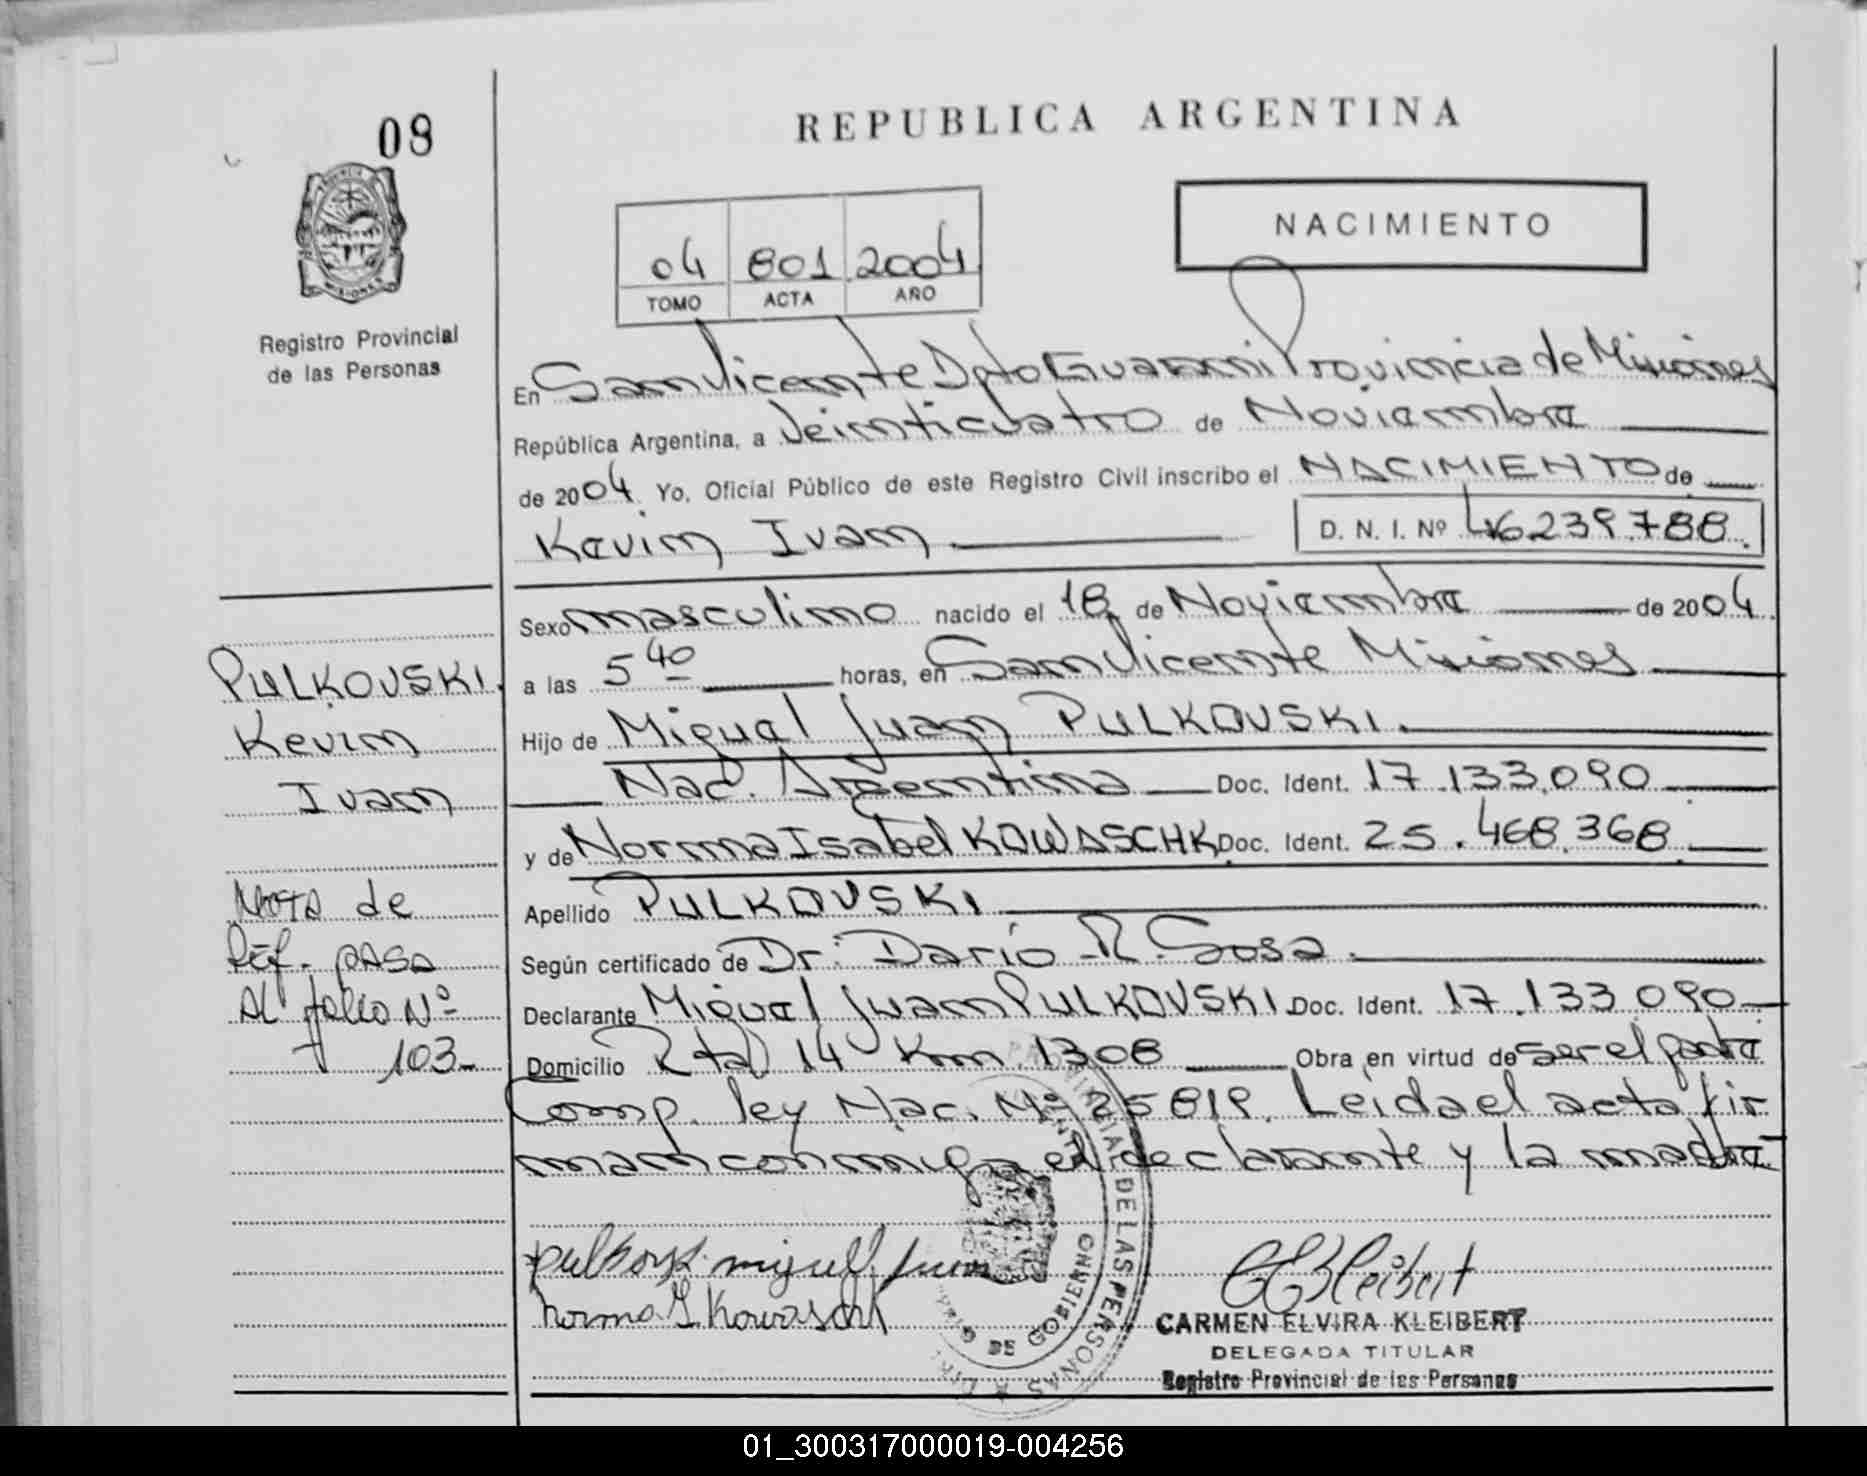 08
REPUBLICA ARGENTINA
NACIMIENTO
04 801 2004
TOMO ACTA AÑO
PROVINCIA
MISIONES
Registro Provincial
de las Personas
En San Vicente Dpto Guarani Provincia de Misiones
República Argentina, a Veinticuatro de Noviembre
de 2004. Yo, Oficial Público de este Registro Civil inscribo el NACIMIENTO de
Kevin Ivan D. N. I. Nº 46.239.788.
Sexo masculino nacido el 18 de Noviembre de 2004
a las 5 40 horas, en San Vicente Misiones
Hijo de Miguel Juan PULKOVSKI.
Nac. Argentina Doc. Ident. 17.133.090
y de Norma Isabel KOWASCHK Doc. Ident. 25.468.368
Apellido PULKOVSKI
Según certificado de Dr. Darío R. Sosa.
Declarante Miguel Juan PULKOVSKI Doc. Ident. 17.133.090
Domicilio R tal 14 Km 1308 Obra en virtud de ser el padre
Comp. ley Nac. Nº 25819. Leida el acta fir
man conmigo el declarante y la madre
PULKOVSKI
Kevin
Ivan
Nota de
Ref. pasa
Al folio Nº
103-
pulkovski miguel juan
norma I Kowaschk
DE LAS PERSONAS
DE GOBIERNO
CEKleibert
CARMEN ELVIRA KLEIBERT
DELEGADA TITULAR
Registro Provincial de las Personas
01_300317000019-004256